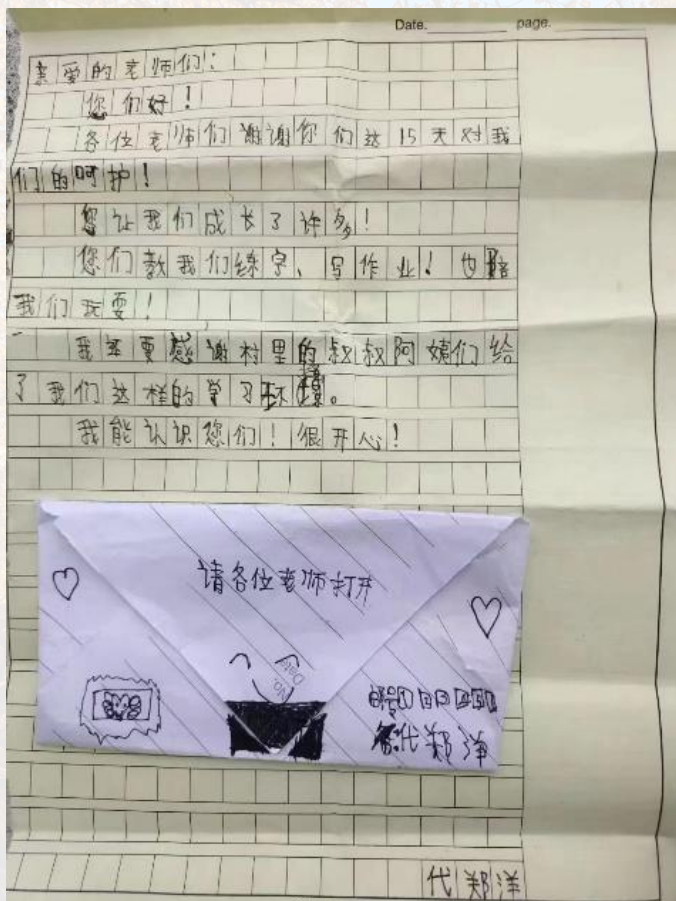 Date. page.
亲爱的老师们:
您们好!
各位老师们谢谢你们这15天对我
们的呵护!
您让我们成长了许多!
您们教我们练字、写作业!也陪
我们玩耍!
我还要感谢村里的叔叔阿姨们给
了我们这样的学习环境。
我能认识您们!很开心!
请各位老师打开
No.
Date
代郑洋
代郑洋